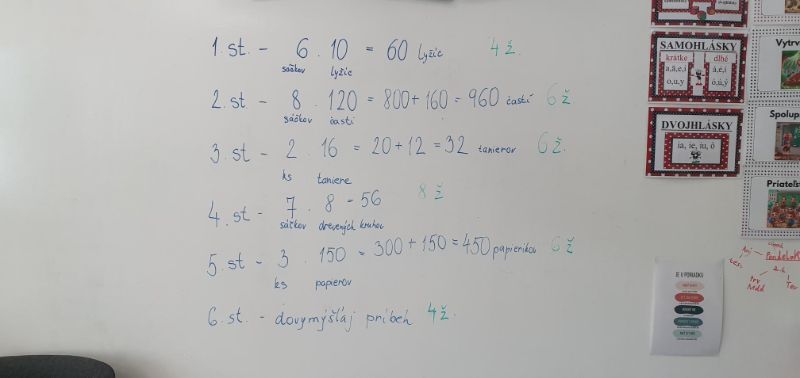 1. st. - 6 . 10 = 60 lyžíc 4 ž.
sáčkov lyžíc
2. st - 8 . 120 = 800 + 160 = 960 častí 6 ž
sáčkov častí
3. st - 2 . 16 = 20 + 12 = 32 tanierov 6 ž.
ks taniere
4. st - 7 . 8 - 56 8 ž
sáčkov drevených kruhov
5. st - 3 . 150 = 300 + 150 = 450 papierikov 6 ž
ks papierov
6. st. - dovymýšľaj príbeh 4 ž.
SAMOHLÁSKY
krátke dlhé
a, ä, e, i á, é, í
o, u, y ó, ú, ý
DVOJHLÁSKY
ia, ie, iu, ô
Vytrv
Spolup
Priateľs
JE V PORIADKU